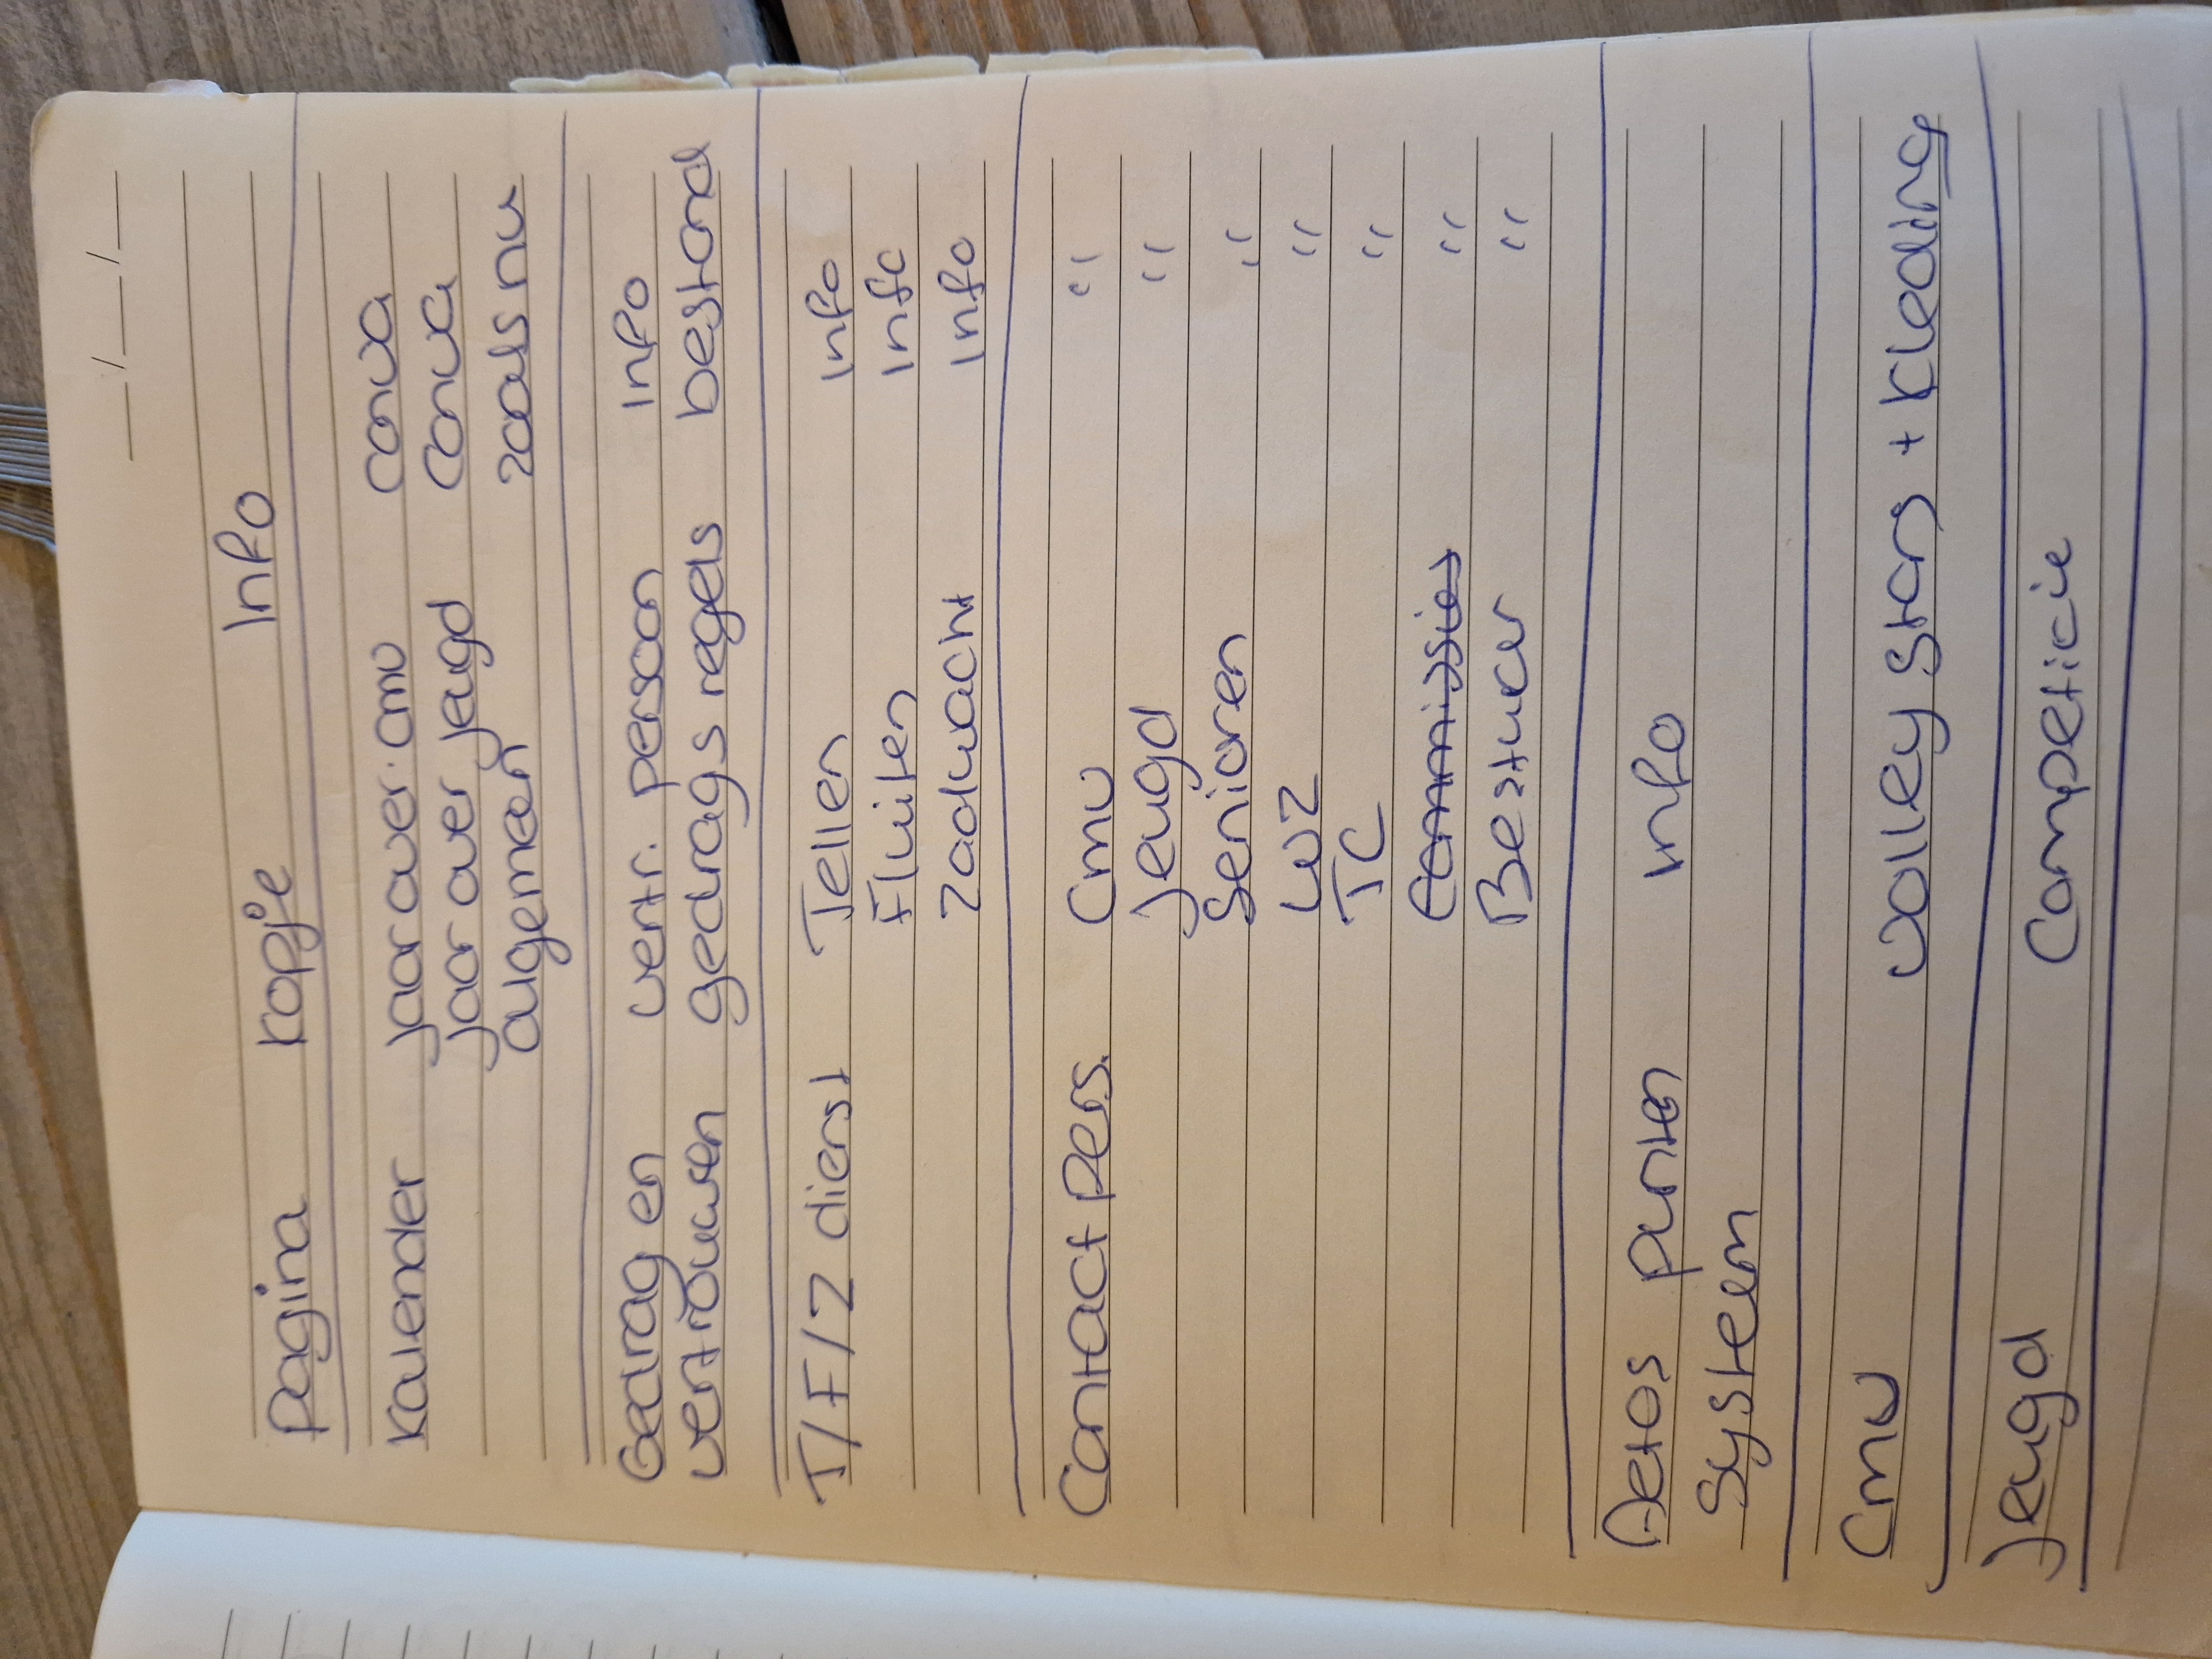 Pagina Kopje Info
Kalender Jaar over. cmv canva
Jaar over jeugd canva
algemeen zoals nu
Gedrag en vertr. persoon Info
vertrouwen gedragsregels bestand
T/F/Z dienst Tellen Info
Fluiten Info
Zaalwacht Info
Contact pers. Cmv "
Jeugd "
Senioren "
WZ "
TC "
Commissies "
Bestuur "
Aetos punten Info
systeem
Cmv Volley stars + Kleding
Jeugd Competicie